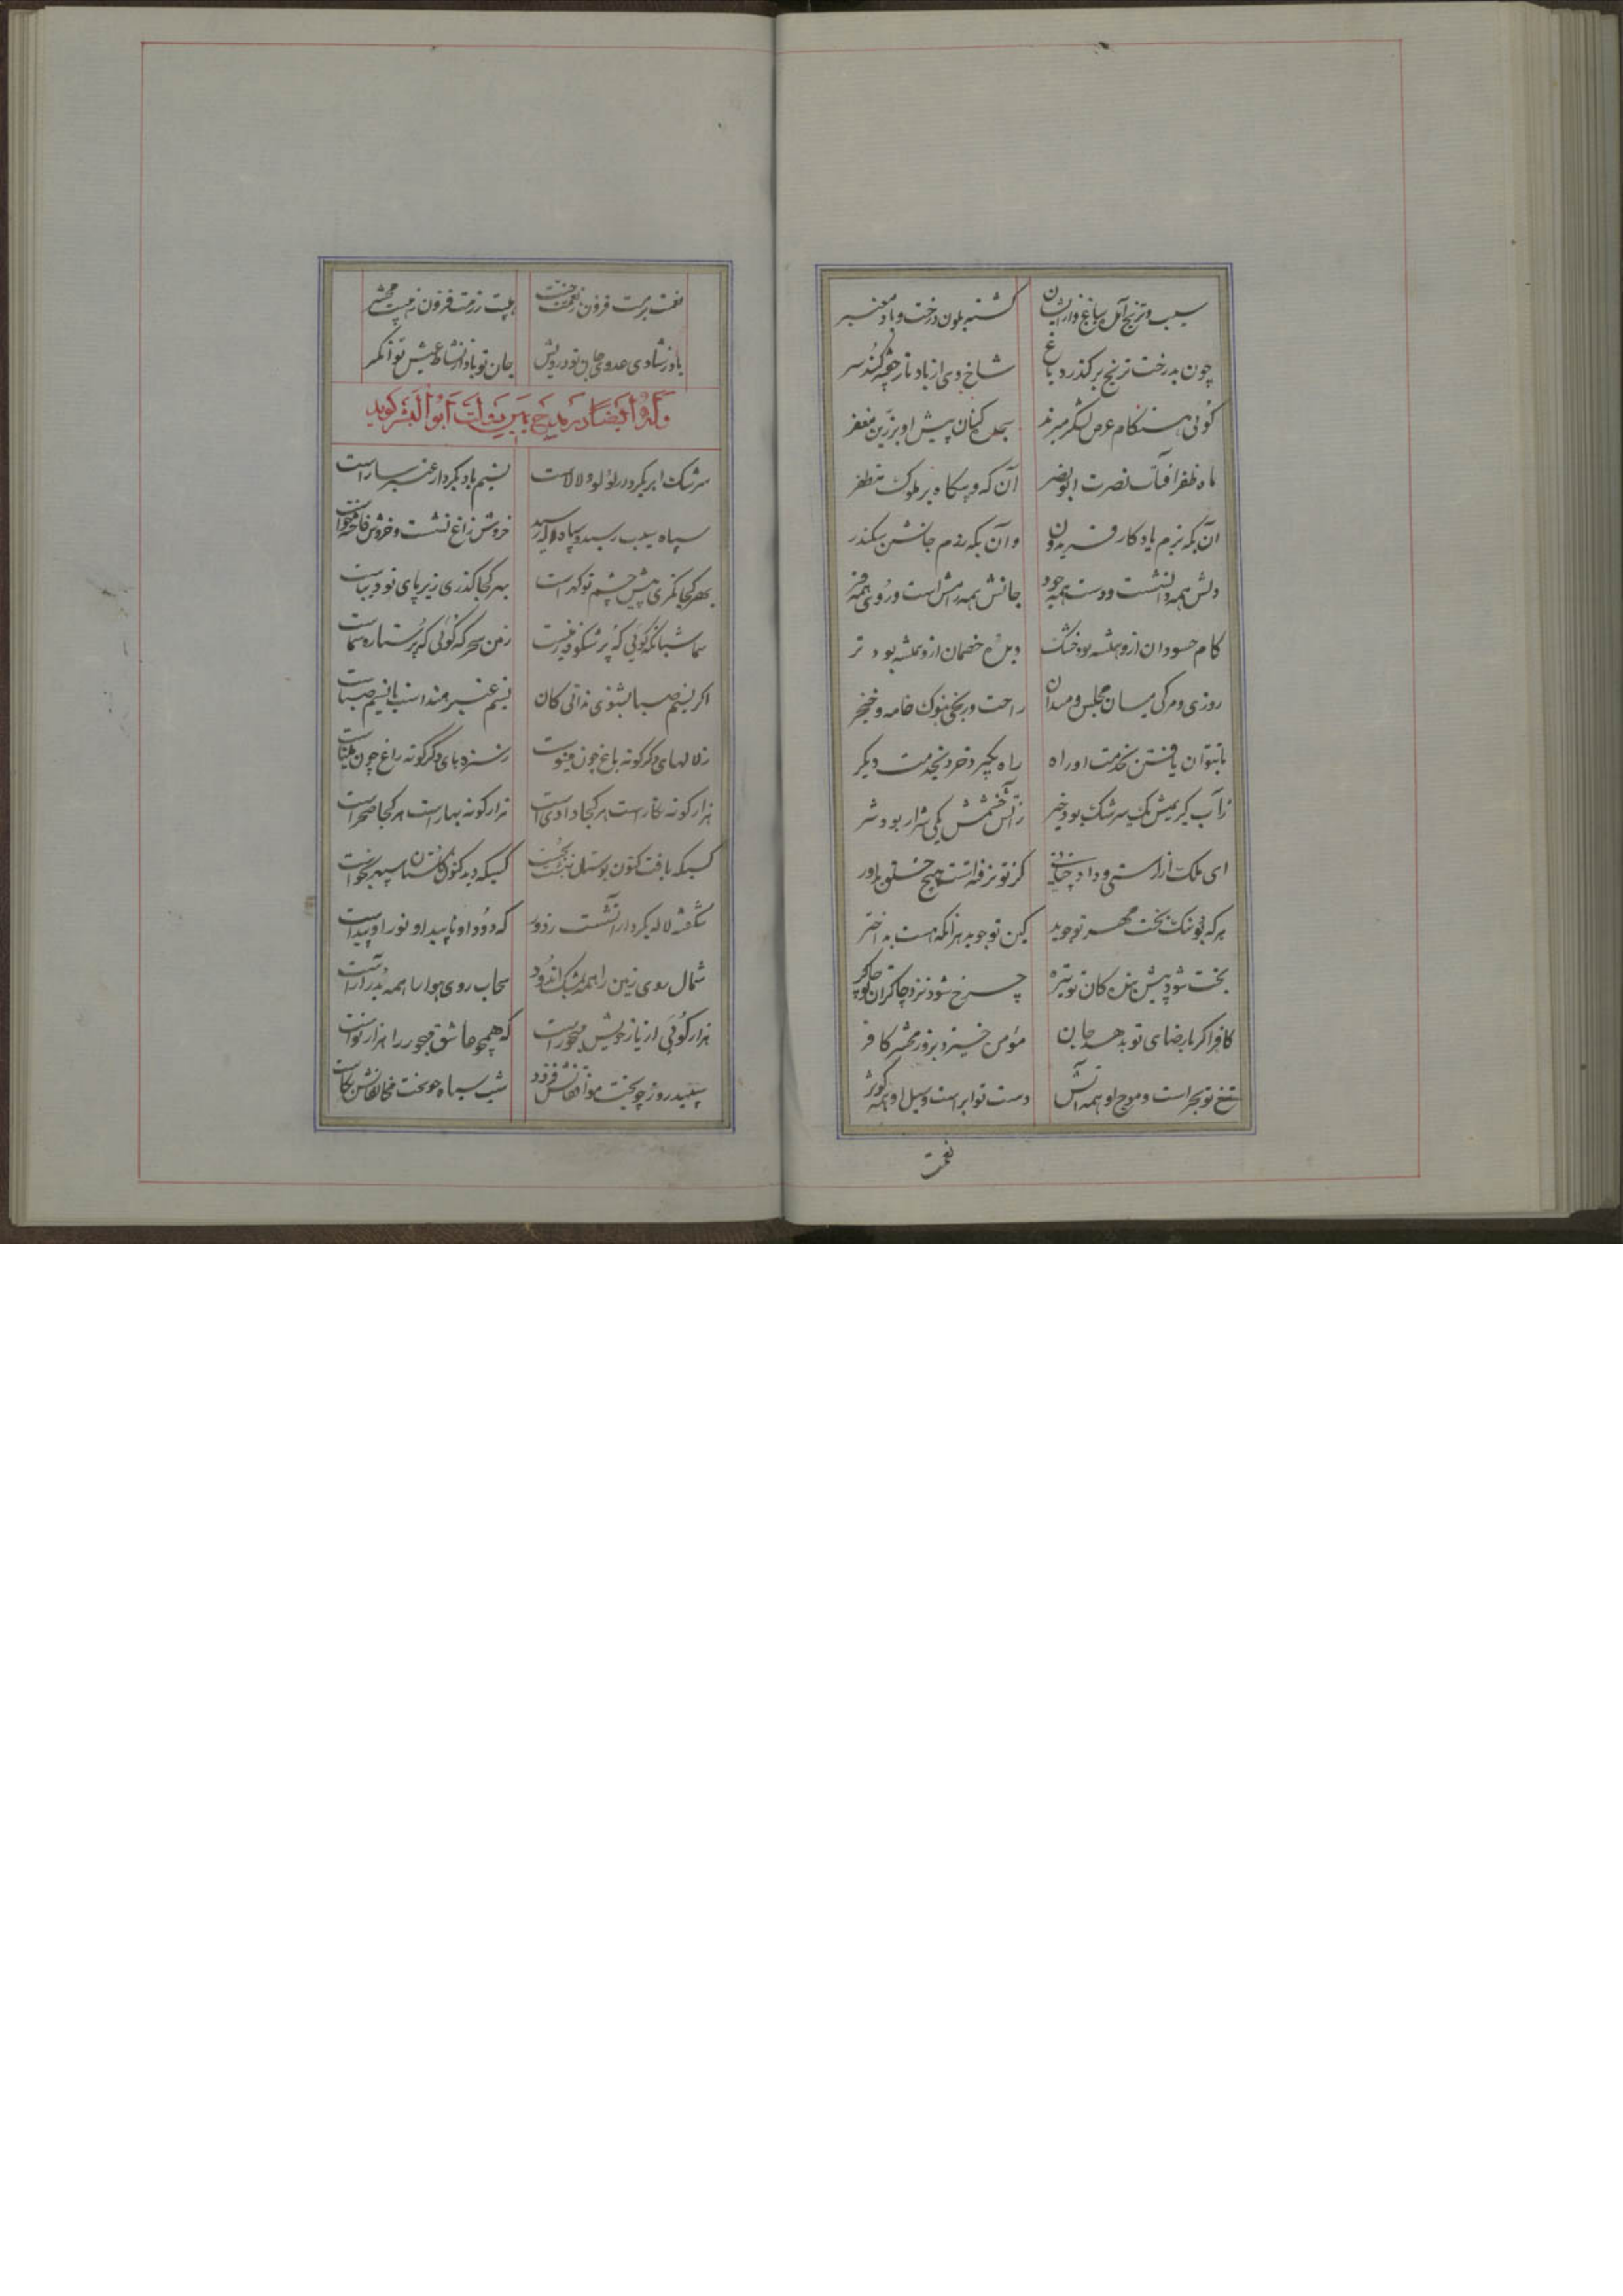 سیب و ترنج آمد بباغ و از ایشان
گشته ملون درخت و باد معنبر
چون بدرخت ترنج برگذرد باغ
شاخ وی از باد نار چفته کند سر
گوئی هنگام عرض لشکر میرند
سجده کنان پیش او بزرین مغفر
ماه ظفر آفتاب نصرت ابونصر
آن که و پیکاه بر ملوک مظفر
آن که ببزم یادکار فریدون
وآن که برزم جانشین سکندر
دلش همه دانشست و دست همه جود
جانش همه رامش است و روی همه فر
کام حسودان ازو همیشه بود خشک
دیده خصمان ازو همیشه بود تر
روزی و مرگی میان مجلس و میدان
راحت و رنجی بنوک خامه و خنجر
تا بتوان یافتن بخدمت او راه
راه نگیرد خرد بخدمت دیگر
زآب کریمیش یک سرشک بود خیر
زآتش خشمش یکی شرار بود شر
ای ملک از راستی و داد چنانی
کز تو نرفتست هیچ خلق بداور
هرکه بود نیک بخت مهر تو جوید
کین تو جوید هرآنکه هست بد اختر
بخت شود پیش بندکان تو بنده
چرخ شود نزد چاکران تو چاکر
کافر اکر با رضای تو بدهد جان
مؤمن خیزد بروز محشر کافر
تیغ تو بحر است و موج او همه آتش
دست تو ابر است و سیل او همه کوثر
نعمت
نعمت بزمت فزون ز نعمت جنت
هیبت رزمت فزون ز هیبت محشر
باد ز شادی عدوی جان تو درویش
جان تو باد از نشاط عیش توانگر
وله ایضا در مدح ابوالبشر گوید
سرشک ابر بکردار لؤلؤ لالاست
نسیم باد بکردار عنبر ساراست
سپاه سیب رسید و سپاه لاله رسید
خروش زاغ نشست و خروش فاخته خواست
بهر کجا نگری پیش چشم تو گهر است
بهر کجا گذری زیر پای تو دیباست
سما شبانگه گوئی که پر شکوفه زمیست
زمین سحرگه گوئی که پر ستاره سماست
اکر نسیم صبا بشنوی ندانی کان
نسیم عنبر هندیست یا نسیم صباست
ز لالهای دگرگونه باغ چون مینوست
ز سبزه‌های دگرگونه راغ چون میناست
هزار گونه نگار است هر کجا وادی است
هزار گونه بهار است هر کجا صحراست
کسیکه یافت کنون بوستان بهشت نجست
کسیکه دید کنون گلستان سپهر نخواست
شکفته لاله بکردار آتشست ز دور
که دود او ناپیدا و نور او پیداست
شمال روی زمین را همه بمشک اندود
سحاب روی هوا را همه بدر آراست
هزار گوئی از یار خویش مهجور است
که همچو عاشق مهجور را هزار نواست
سپید روز چو بخت موافقانش فزود
شب سیاه چو بخت مخالفانش بکاست